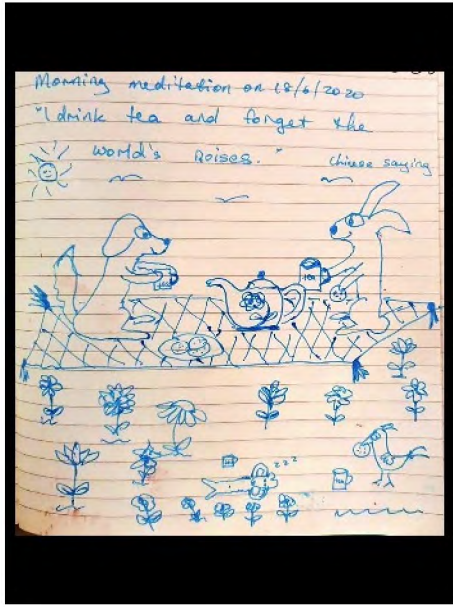 Morning meditation on 18/6/2020
"I drink tea and forget the
world's noises."
chinese saying
tea
zzz